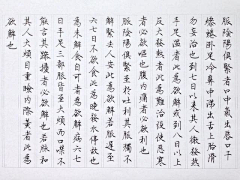 脈陰陽俱緊者口中氣出唇口干
燥踡卧足冷鼻中涕出舌上胎滑
勿妄治也到七日以来其人微發熱
手足溫者此爲欲解或到八日以上
反大發熱者此爲難治設使惡寒
者必欲嘔也腹内痛者必欲利也
脈陰陽俱緊至於吐利其脈獨不
解緊去人安此爲欲解若脈遲至
六七日不欲食此爲晚發水停故也
爲未解食自可者爲欲解病六七
日手足三部脈皆至大煩而口噤不
能言其躁擾者必欲解也若脈和
其人大煩目重瞼内際黄者此爲
欲解也